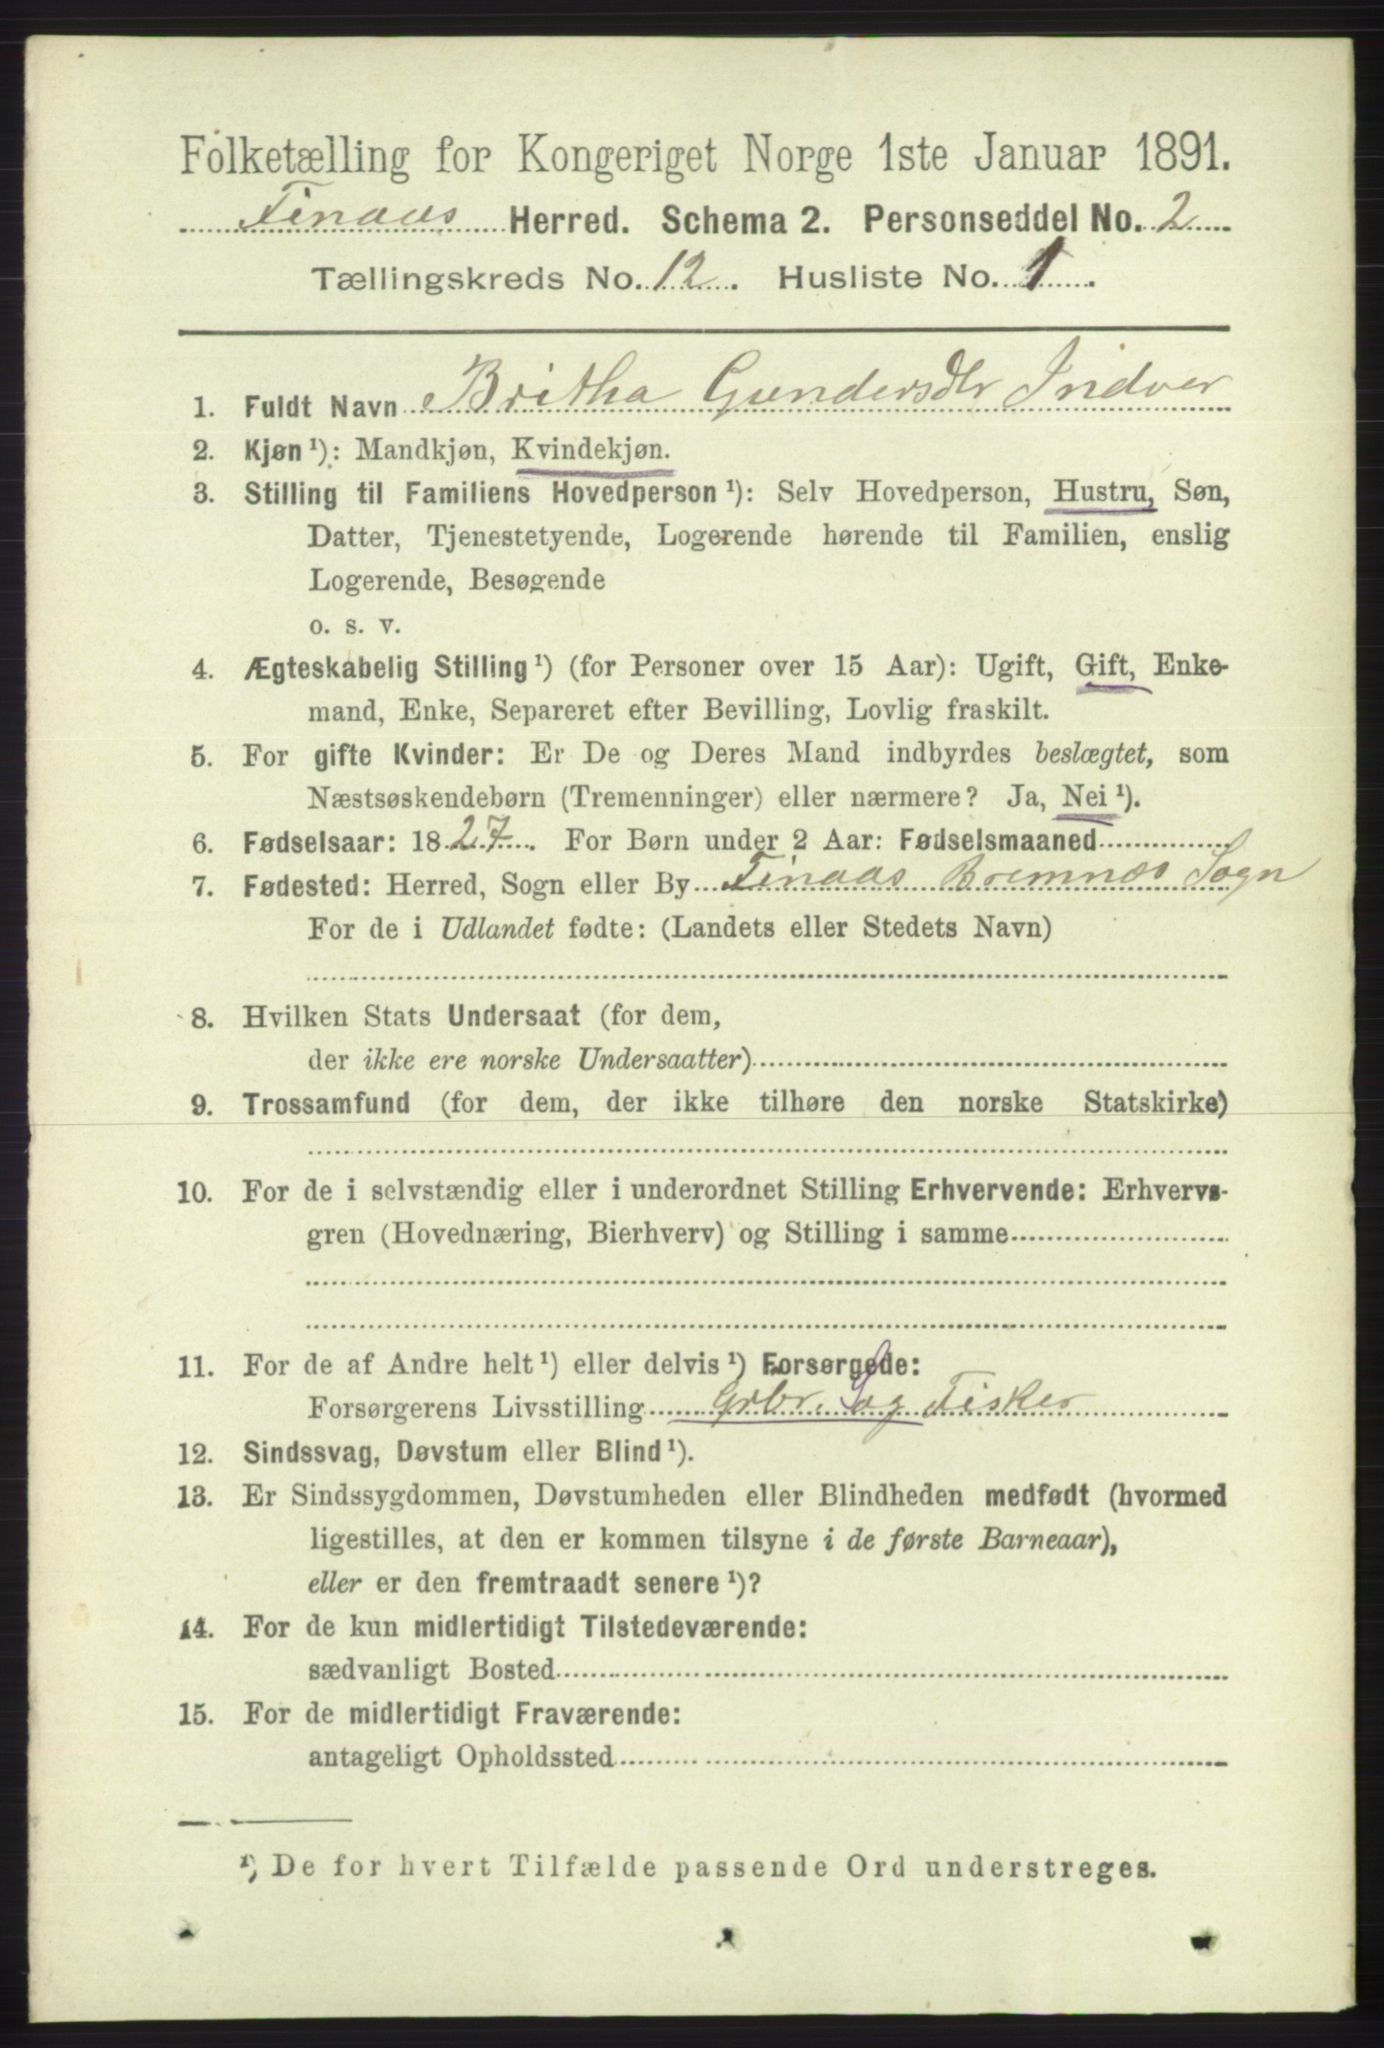 Folketælling for Kongeriget Norge 1ste Januar 1891.
Finaas Herred. Schema 2. Personseddel No. 2
Tællingskreds No. 12. Husliste No. 1.
1. Fuldt Navn Britha Gundersdtr Indvær
2. Kjøn¹): Mandkjøn, Kvindekjøn.
3. Stilling til Familiens Hovedperson¹): Selv Hovedperson, Hustru, Søn,
Datter, Tjenestetyende, Logerende hørende til Familien, enslig
Logerende, Besøgende
o. s. v.
4. Ægteskabelig Stilling¹) (for Personer over 15 Aar): Ugift, Gift, Enke-
mand, Enke, Separeret efter Bevilling, Lovlig fraskilt.
5. For gifte Kvinder: Er De og Deres Mand indbyrdes beslægtet, som
Næstsøskendebørn (Tremenninger) eller nærmere? Ja, Nei¹).
6. Fødselsaar: 1827. For Børn under 2 Aar: Fødselsmaaned
7. Fødested: Herred, Sogn eller By Finaas Bremnæs Sogn
For de i Udlandet fødte: (Landets eller Stedets Navn)
8. Hvilken Stats Undersaat (for dem,
der ikke ere norske Undersaatter)
9. Trossamfund (for dem, der ikke tilhøre den norske Statskirke)
10. For de i selvstændig eller i underordnet Stilling Erhvervende: Erhvervs-
gren (Hovednæring, Bierhverv) og Stilling i samme
11. For de af Andre helt¹) eller delvis¹) Forsørgede:
Forsørgerens Livsstilling Grbr. S og Fisker
12. Sindssvag, Døvstum eller Blind¹).
13. Er Sindssygdommen, Døvstumheden eller Blindheden medfødt (hvormed
ligestilles, at den er kommen tilsyne i de første Barneaar),
eller er den fremtraadt senere¹)?
14. For de kun midlertidigt Tilstedeværende:
sædvanligt Bosted
15. For de midlertidigt Fraværende:
antageligt Opholdssted
¹) De for hvert Tilfælde passende Ord understreges.